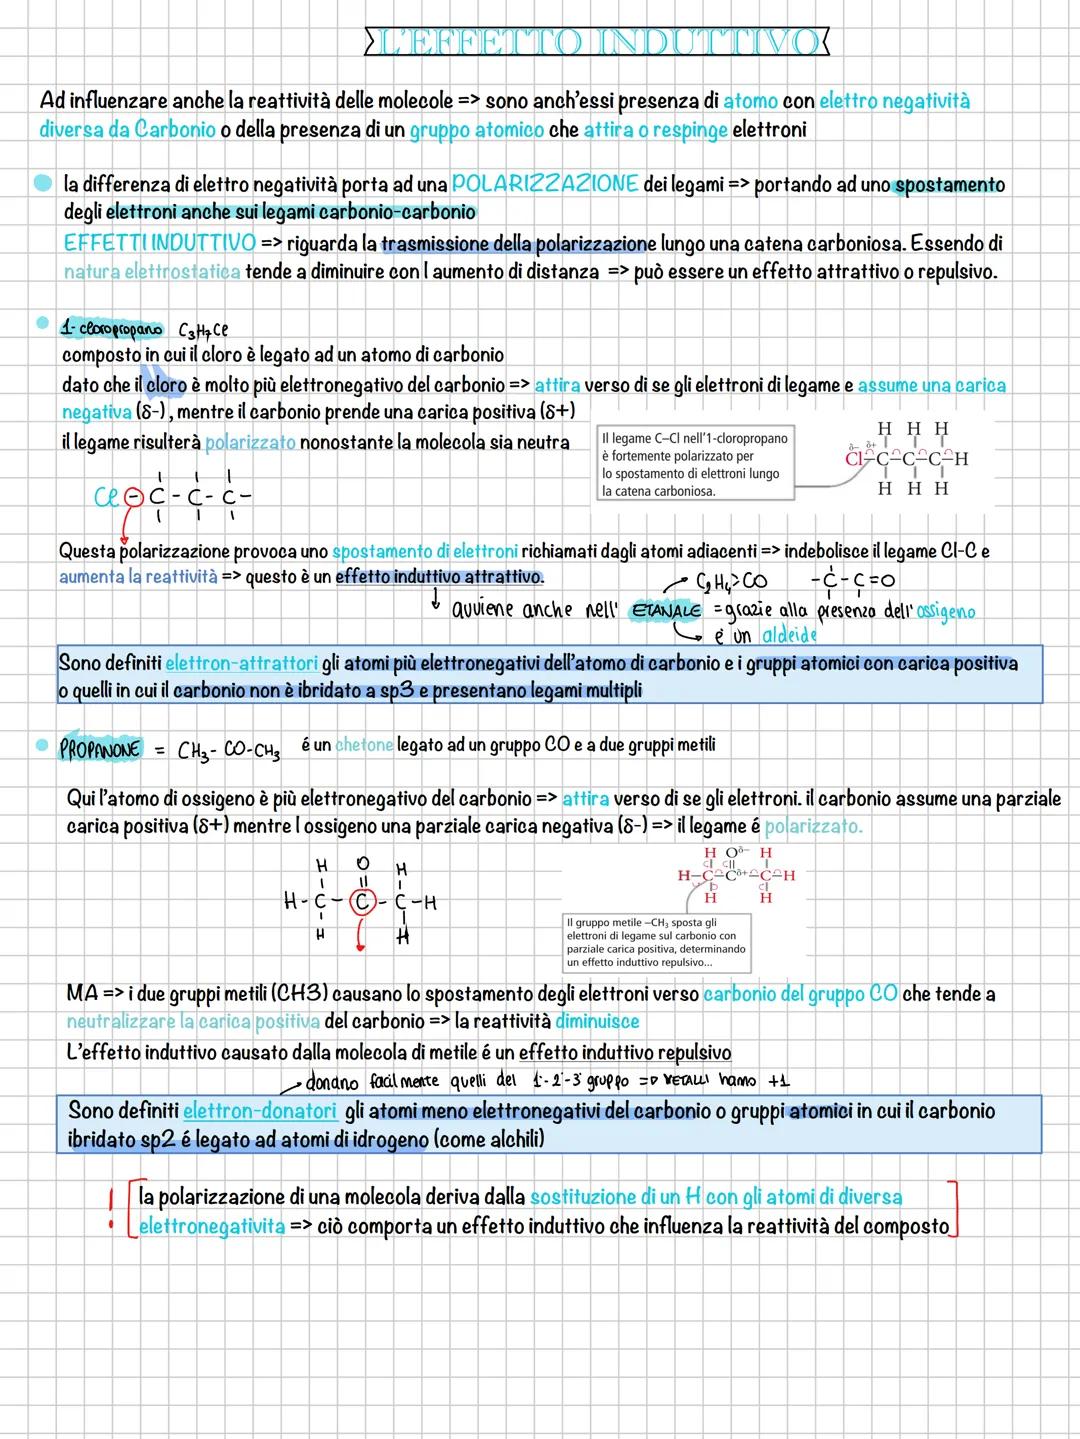 L'EFFETTO INDUTTIVO
Ad influenzare anche la reattività delle molecole => sono anch'essi presenza di atomo con elettro negatività
diversa da Carbonio o della presenza di un gruppo atomico che attira o respinge elettroni
la differenza di elettro negatività porta ad una POLARIZZAZIONE dei legami => portando ad uno spostamento
degli elettroni anche sui legami carbonio-carbonio
EFFETTI INDUTTIVO => riguarda la trasmissione della polarizzazione lungo una catena carboniosa. Essendo di
natura elettrostatica tende a diminuire con l aumento di distanza => può essere un effetto attrattivo o repulsivo.
1- cloropropano C3H7Cl
composto in cui il cloro è legato ad un atomo di carbonio
dato che il cloro è molto più elettronegativo del carbonio => attira verso di se gli elettroni di legame e assume una carica
negativa (δ-), mentre il carbonio prende una carica positiva (δ+)
il legame risulterà polarizzato nonostante la molecola sia neutra
Il legame C–Cl nell'1-cloropropano
è fortemente polarizzato per
lo spostamento di elettroni lungo
la catena carboniosa.
H H H
δ– δ+
Cl–C–C–C–H
H H H
Cl - C - C - C -
Questa polarizzazione provoca uno spostamento di elettroni richiamati dagli atomi adiacenti => indebolisce il legame Cl-C e
aumenta la reattività => questo è un effetto induttivo attrattivo.
C2H4>CO -C-C=O
avviene anche nell' ETANALE = grazie alla presenza dell' ossigeno
è un aldeide
Sono definiti elettron-attrattori gli atomi più elettronegativi dell'atomo di carbonio e i gruppi atomici con carica positiva
o quelli in cui il carbonio non è ibridato a sp3 e presentano legami multipli
PROPANONE = CH3- CO-CH3 é un chetone legato ad un gruppo CO e a due gruppi metili
Qui l'atomo di ossigeno è più elettronegativo del carbonio => attira verso di se gli elettroni. il carbonio assume una parziale
carica positiva (δ+) mentre l ossigeno una parziale carica negativa (δ-) => il legame é polarizzato.
H O H
H-C-C-C-H
H H
H Oδ– H
H–C–Cδ+–C–H
H H
Il gruppo metile –CH3 sposta gli
elettroni di legame sul carbonio con
parziale carica positiva, determinando
un effetto induttivo repulsivo...
MA => i due gruppi metili (CH3) causano lo spostamento degli elettroni verso carbonio del gruppo CO che tende a
neutralizzare la carica positiva del carbonio => la reattività diminuisce
L'effetto induttivo causato dalla molecola di metile é un effetto induttivo repulsivo
donano facilmente quelli del 1°-2°-3° gruppo => METALLI hanno +1
Sono definiti elettron-donatori gli atomi meno elettronegativi del carbonio o gruppi atomici in cui il carbonio
ibridato sp2 é legato ad atomi di idrogeno (come alchili)
! la polarizzazione di una molecola deriva dalla sostituzione di un H con gli atomi di diversa
elettronegativita => ciò comporta un effetto induttivo che influenza la reattività del composto